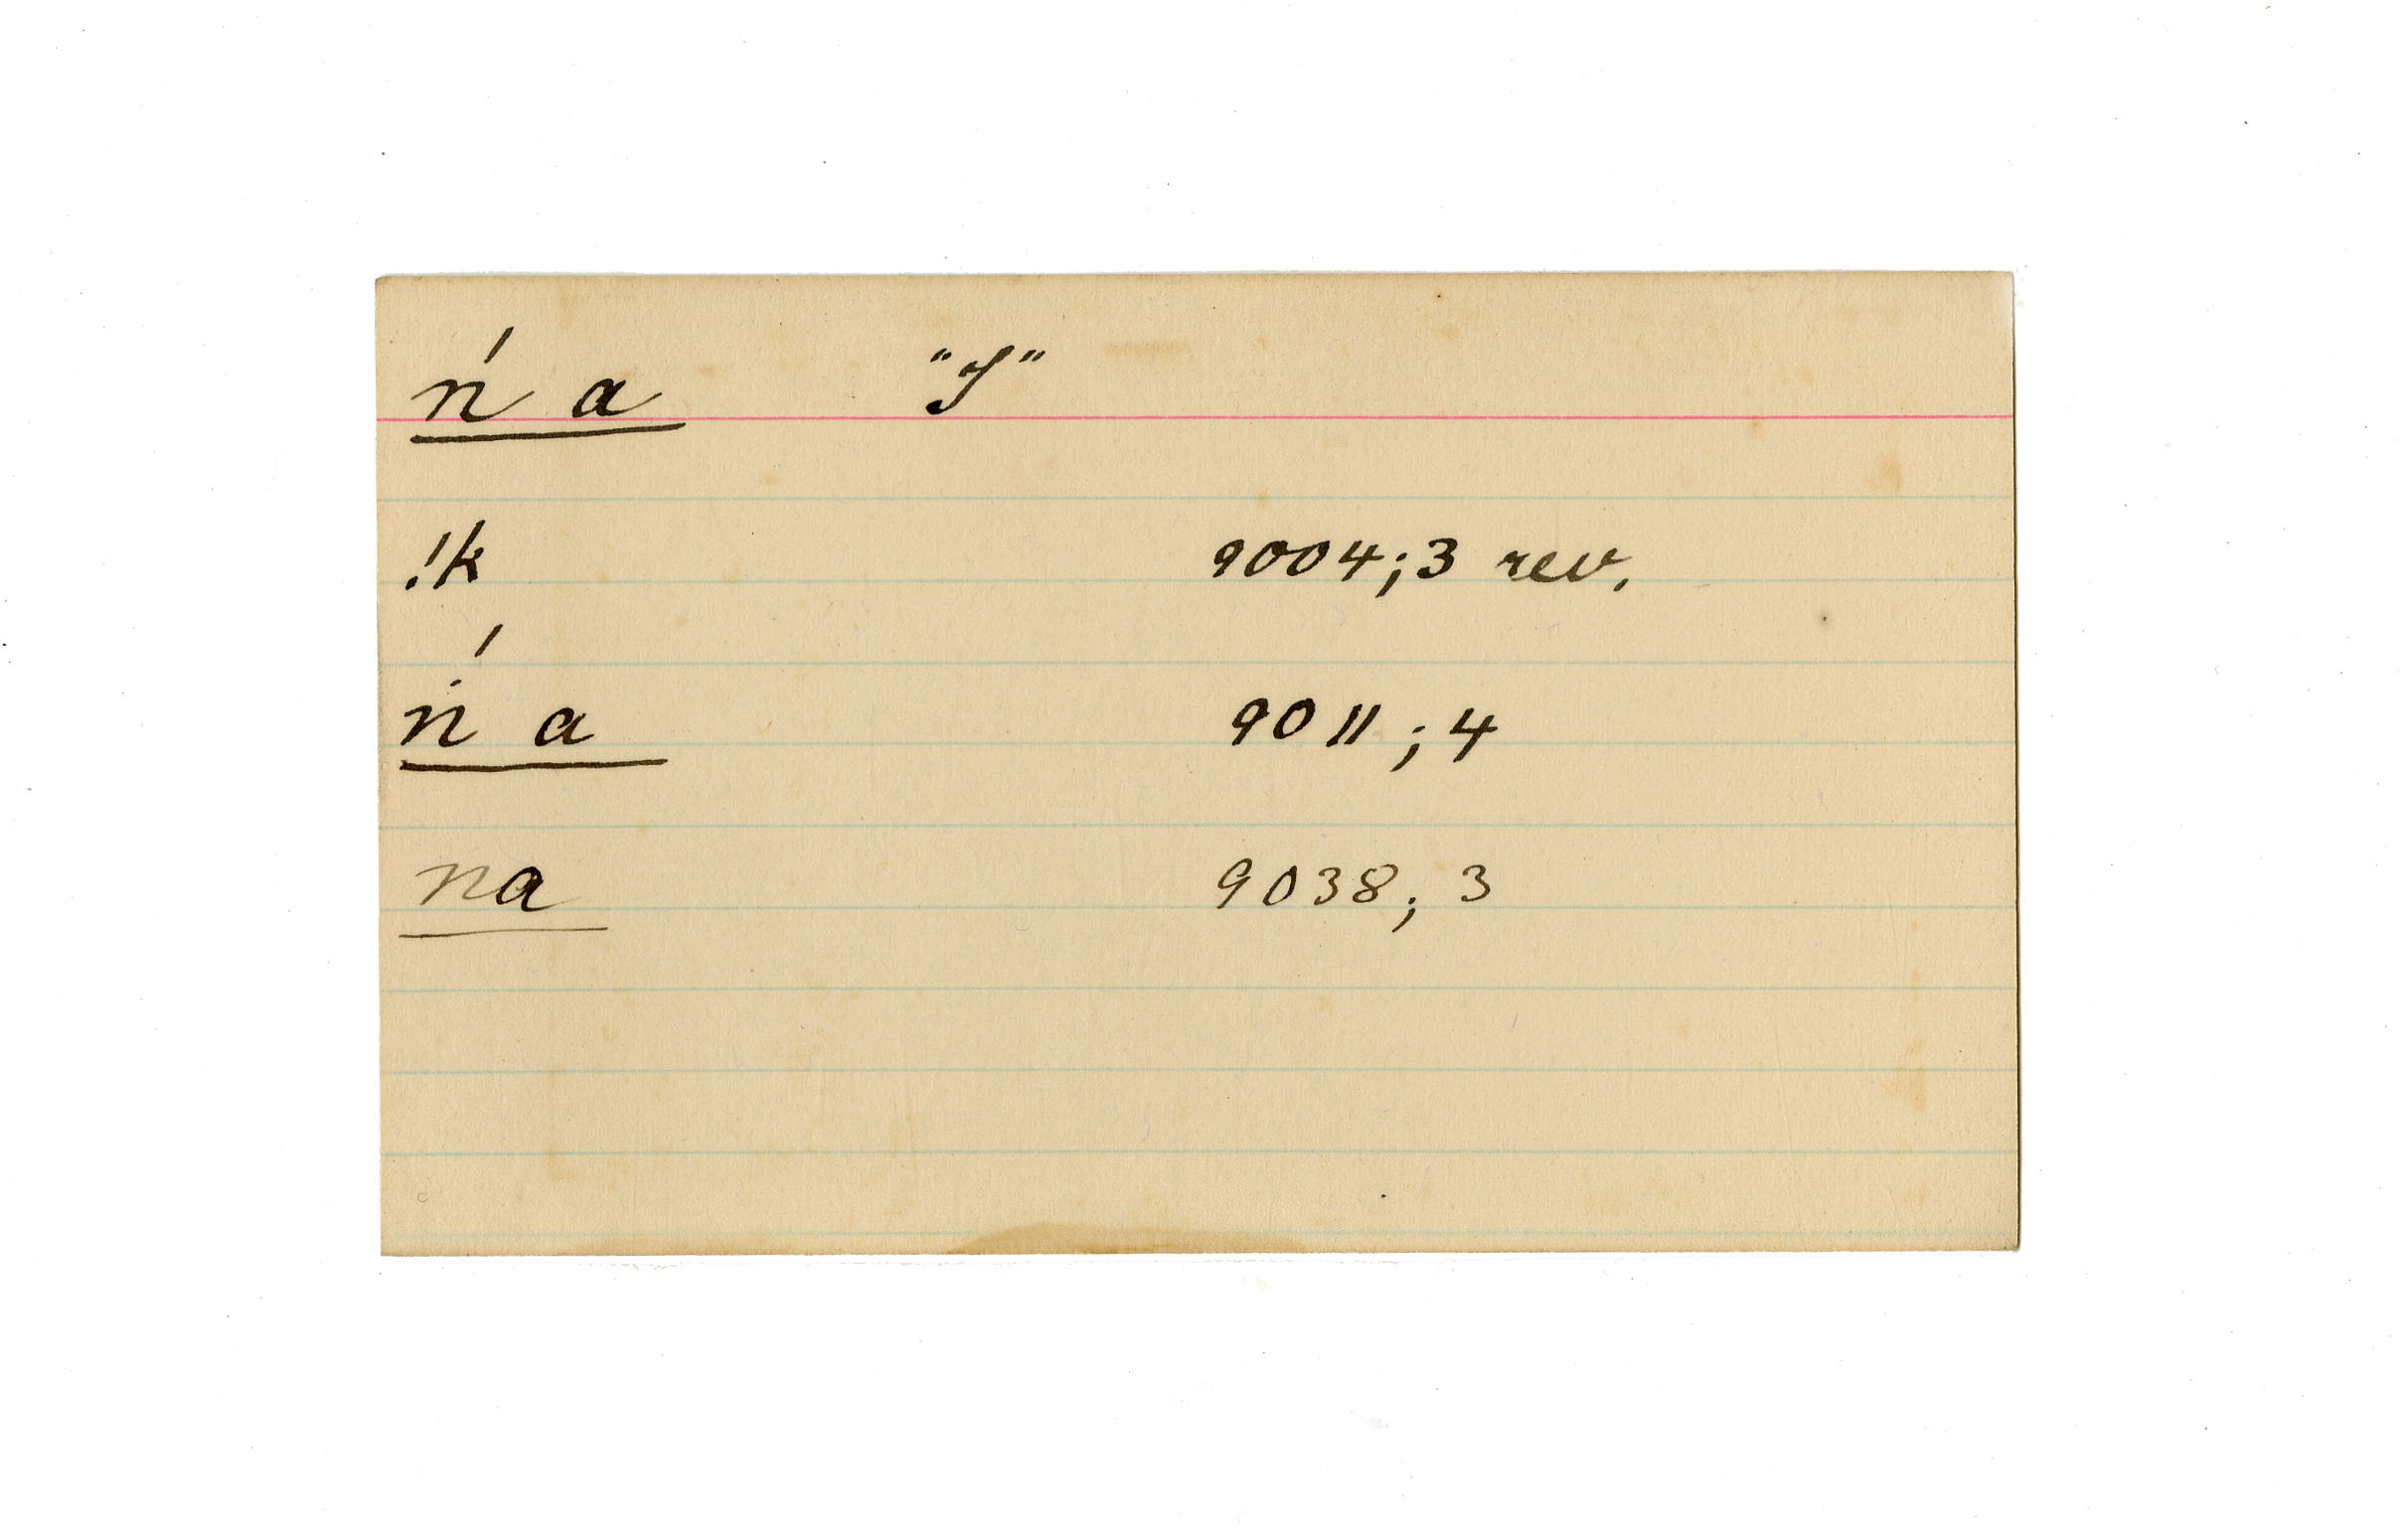 ń a "I"
!k 9004;3 rev.
ṅ́ a 9011;4
na 9038;3